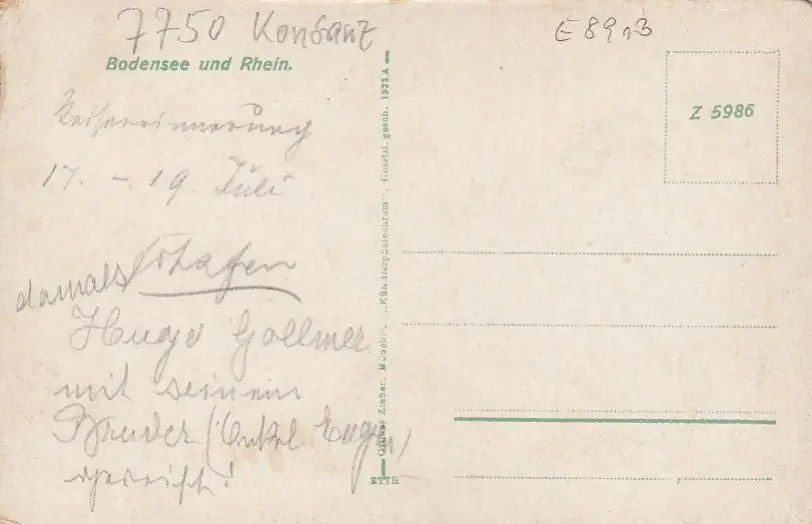 7750 Konstanz
E 89,3
Bodensee und Rhein.
Z 5986
Reiseerinnerung
17. - 19. Juli
damals
Hugo Gollmer
mit seinem
Bruder (Onkel Eugen)
gereist!
Ottmar Zieher, München. „Künstlerphotochrom“. Gesetzl. gesch. 1923 A
ETTH